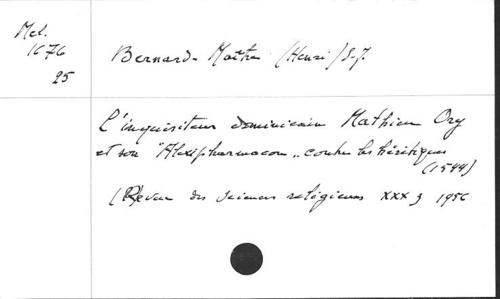 Mel.
1676
25
Bernard-Maître (Henri) S.J.
L'inquisiteur dominicain Mathieu Ory
et son "Alexipharmacon" contre les hérétiques
(1544)
(Revue des sciences religieuses XXX 1956